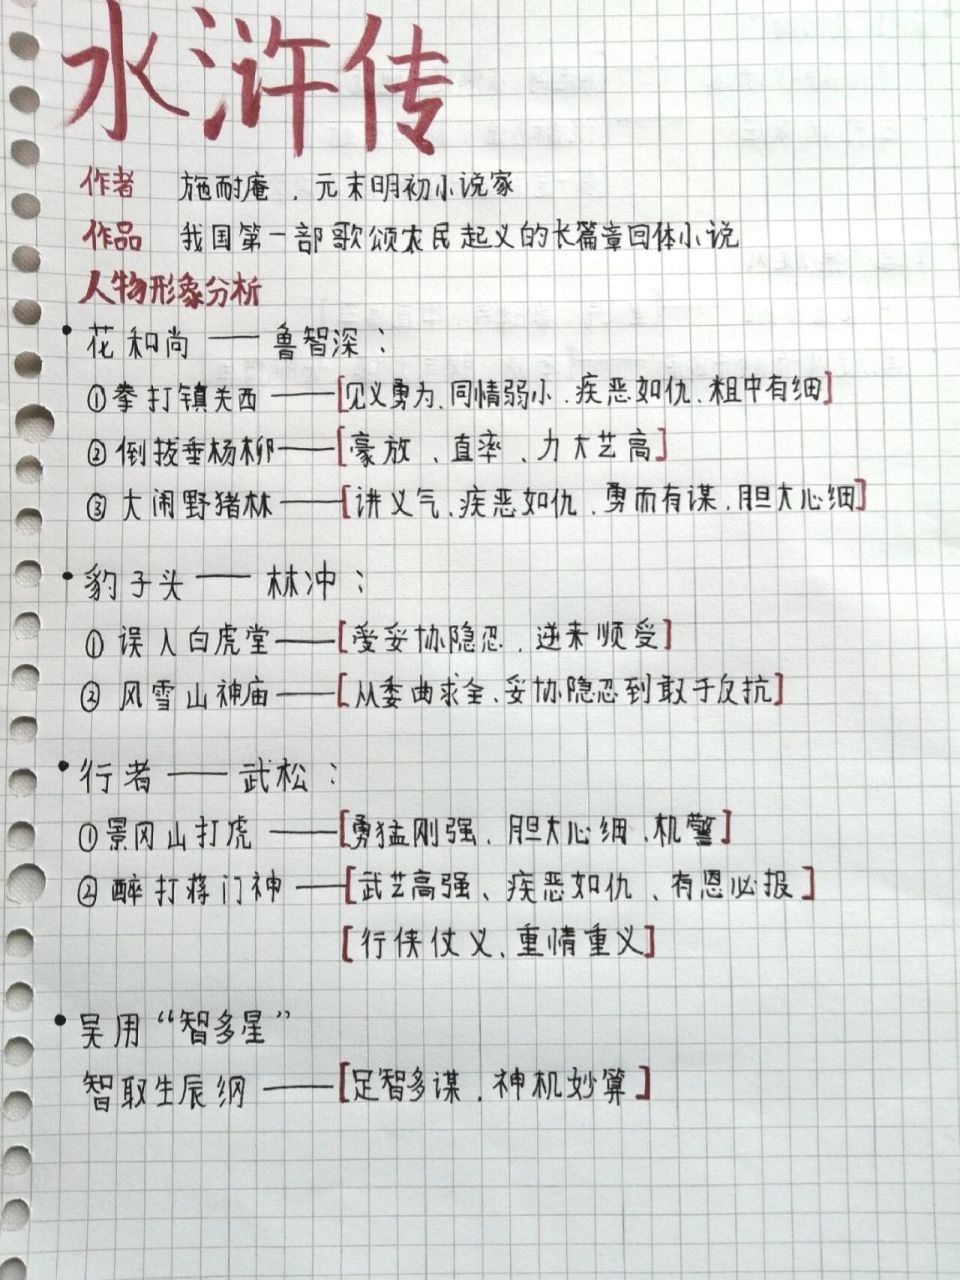 水浒传
作者 施耐庵，元末明初小说家
作品 我国第一部歌颂农民起义的长篇章回体小说
人物形象分析
• 花和尚 —— 鲁智深：
①拳打镇关西 ——[见义勇为、同情弱小、疾恶如仇、粗中有细]
②倒拔垂杨柳——[豪放、直率、力大艺高]
③大闹野猪林——[讲义气、疾恶如仇、勇而有谋，胆大心细]
• 豹子头 —— 林冲：
①误入白虎堂——[爱妥协隐忍，逆来顺受]
②风雪山神庙——[从委曲求全、妥协隐忍到敢于反抗]
• 行者 —— 武松：
①景冈山打虎 ——[勇猛刚强、胆大心细、机警]
②醉打蒋门神 ——[武艺高强、疾恶如仇、有恩必报]
[行侠仗义、重情重义]
• 吴用“智多星”
智取生辰纲 ——[足智多谋，神机妙算]